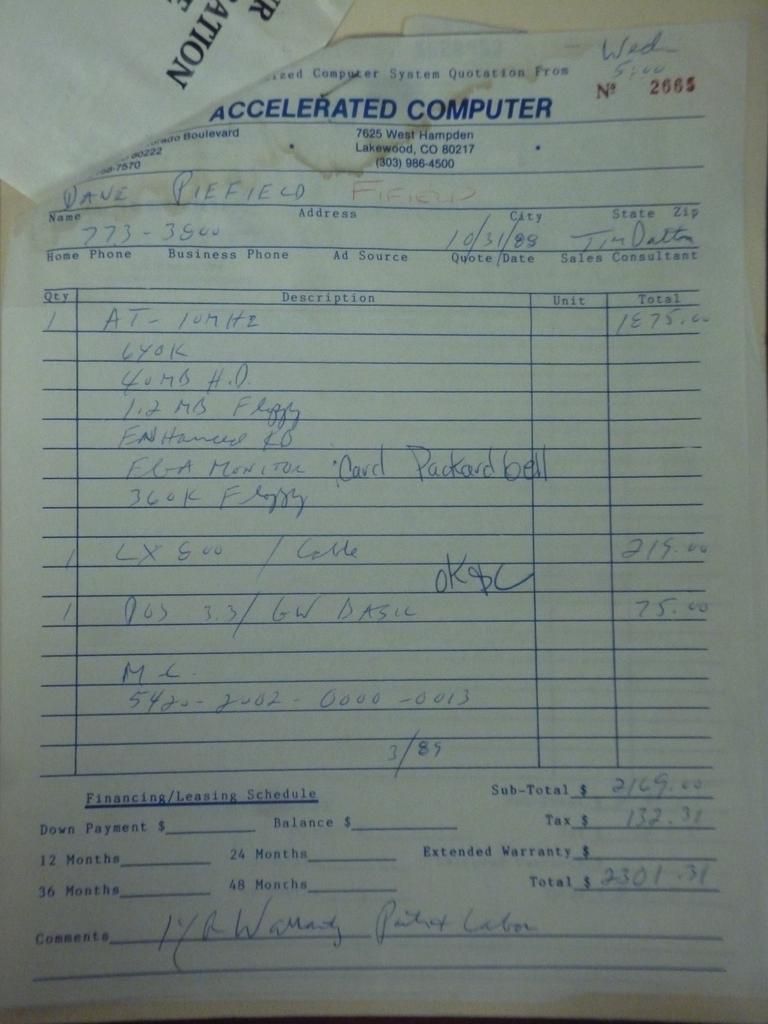 ER
ATION
E
ized Computer System Quotation From
Wed
5:00
Nº 2665
ACCELERATED COMPUTER
orado Boulevard
80222
758-7570
•
7625 West Hampden
Lakewood, CO 80217
(303) 986-4500
•
DANE PIEFIELD FIFIELD
Name Address City State Zip
773-3800 10/31/88 Tim Dalton
Home Phone Business Phone Ad Source Quote Date Sales Consultant
Qty Description Unit Total
1 AT - 10MHZ 1875.00
640K
40MB H.D.
1.2 MB Floppy
ENHanced KB
EGA MONITOR :Card Packard bell
360K Floppy
1 LX 800 / Cable 219.00
OK
1 DOS 3.3/ GW BASIC 75.00
M C.
5420-2002-0000-0013
3/89
Financing/Leasing Schedule Sub-Total $ 2169.00
Down Payment $ Balance $ Tax $ 132.31
12 Months 24 Months Extended Warranty $
36 Months 48 Months Total $ 2301.31
Comments 1 YR Warranty Parts + Labor